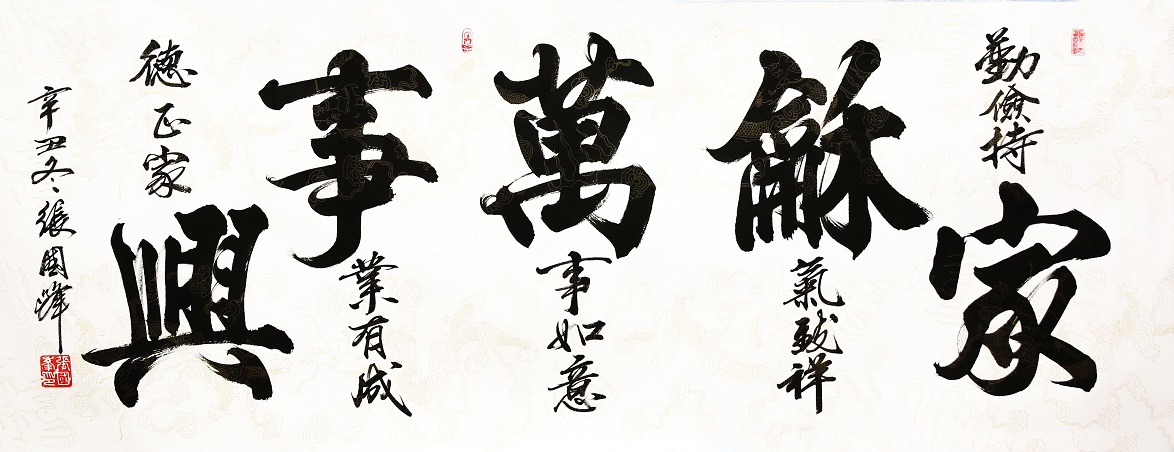 勤儉持家
龢氣致祥
萬事如意
事業有成
德正家興
辛丑冬張國峰